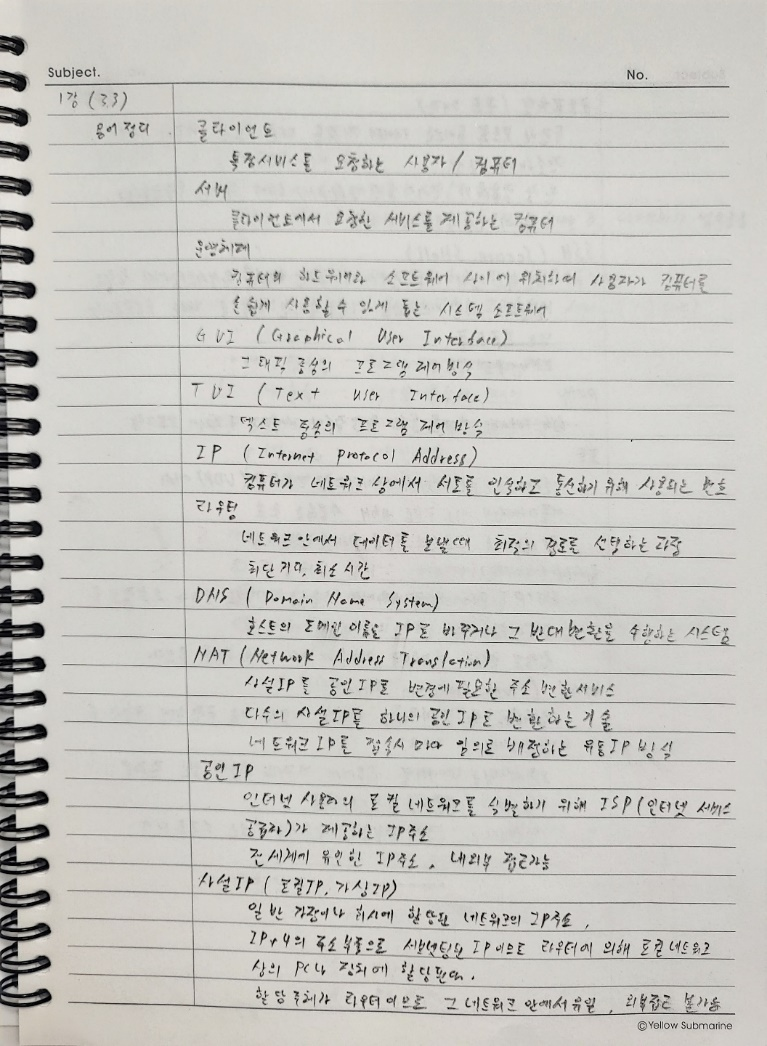 Subject.
No.
1강 (3.3)
용어정리
클라이언트
특정서비스를 요청하는 사용자 / 컴퓨터
서버
클라이언트에서 요청한 서비스를 제공하는 컴퓨터
운영체제
컴퓨터의 하드웨어와 소프트웨어 사이에 위치하며 사용자가 컴퓨터를
손쉽게 사용할 수 있게 돕는 시스템 소프트웨어
GUI (Graphical User Interface)
그래픽 중심의 프로그램 제어 방식
TUI (Text User Interface)
텍스트 중심의 프로그램 제어 방식
IP (Internet Protocol Address)
컴퓨터가 네트워크 상에서 서로를 인식하고 통신하기 위해 사용되는 번호
라우팅
네트워크 안에서 데이터를 보낼때 최적의 경로를 선택하는 과정
최단거리, 최소시간
DNS (Domain Name System)
호스트의 도메인 이름을 IP로 바꾸거나 그 반대변환을 수행하는 시스템
NAT (Network Address Translation)
사설IP를 공인IP로 변경에 필요한 주소 변환서비스
다수의 사설IP를 하나의 공인IP로 변환하는 기술
네트워크 IP를 접속시 마다 임의로 배정하는 유동IP 방식
공인IP
인터넷 사용자의 로컬 네트워크를 식별하기 위해 ISP(인터넷 서비스
공급자)가 제공하는 IP주소
전세계에 유일한 IP주소, 내외부 접근가능
사설IP (로컬IP, 가상IP)
일반 가정이나 회사에 할당된 네트워크의 IP주소,
IPv4의 주소부족으로 서브넷팅된 IP이므로 라우터에 의해 로컬네트워크
상의 PC나 장치에 할당된다.
할당주체가 라우터이므로 그 네트워크 안에서 유일, 외부접근 불가능
©Yellow Submarine